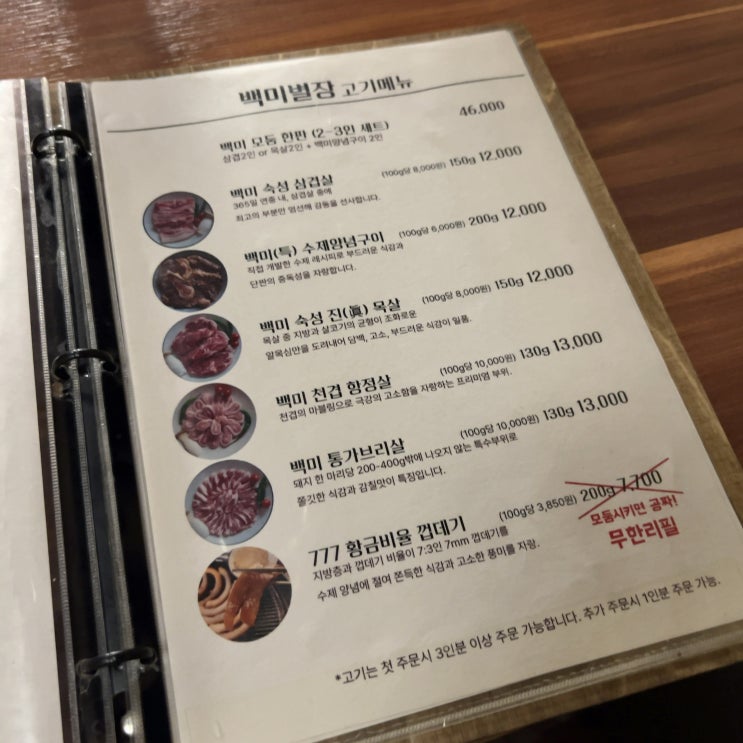 백미별장 고기메뉴
백미 모듬 한판 (2-3인 세트) 46,000
삼겹2인 or 목살2인 + 백미양념구이 2인
백미 숙성 삼겹살 (100g당 8,000원) 150g 12,000
365일 연중 내, 삼겹살 중에
최고의 부분만 엄선해 감동을 선사합니다.
백미(특) 수제양념구이 (100g당 6,000원) 200g 12,000
직접 개발한 수제 레시피로 부드러운 식감과
단반의 중독성을 자랑합니다.
백미 숙성 진(眞) 목살 (100g당 8,000원) 150g 12,000
목살 중 지방과 살코기의 균형이 조화로운
알목심만을 도려내어 담백, 고소, 부드러운 식감이 일품.
백미 천겹 항정살 (100g당 10,000원) 130g 13,000
천겹의 마블링으로 극강의 고소함을 자랑하는 프리미엄 부위.
백미 통가브리살 (100g당 10,000원) 130g 13,000
돼지 한 마리당 200-400g밖에 나오지 않는 특수부위로
쫄깃한 식감과 감칠맛이 특징입니다.
777 황금비율 껍데기 (100g당 3,850원) 200g 7,700
지방층과 껍데기 비율이 7:3인 7mm 껍데기를
수제 양념에 절여 쫀득한 식감과 고소한 풍미를 자랑.
모둠시키면 공짜!
무한리필
*고기는 첫 주문시 3인분 이상 주문 가능합니다. 추가 주문시 1인분 주문 가능.